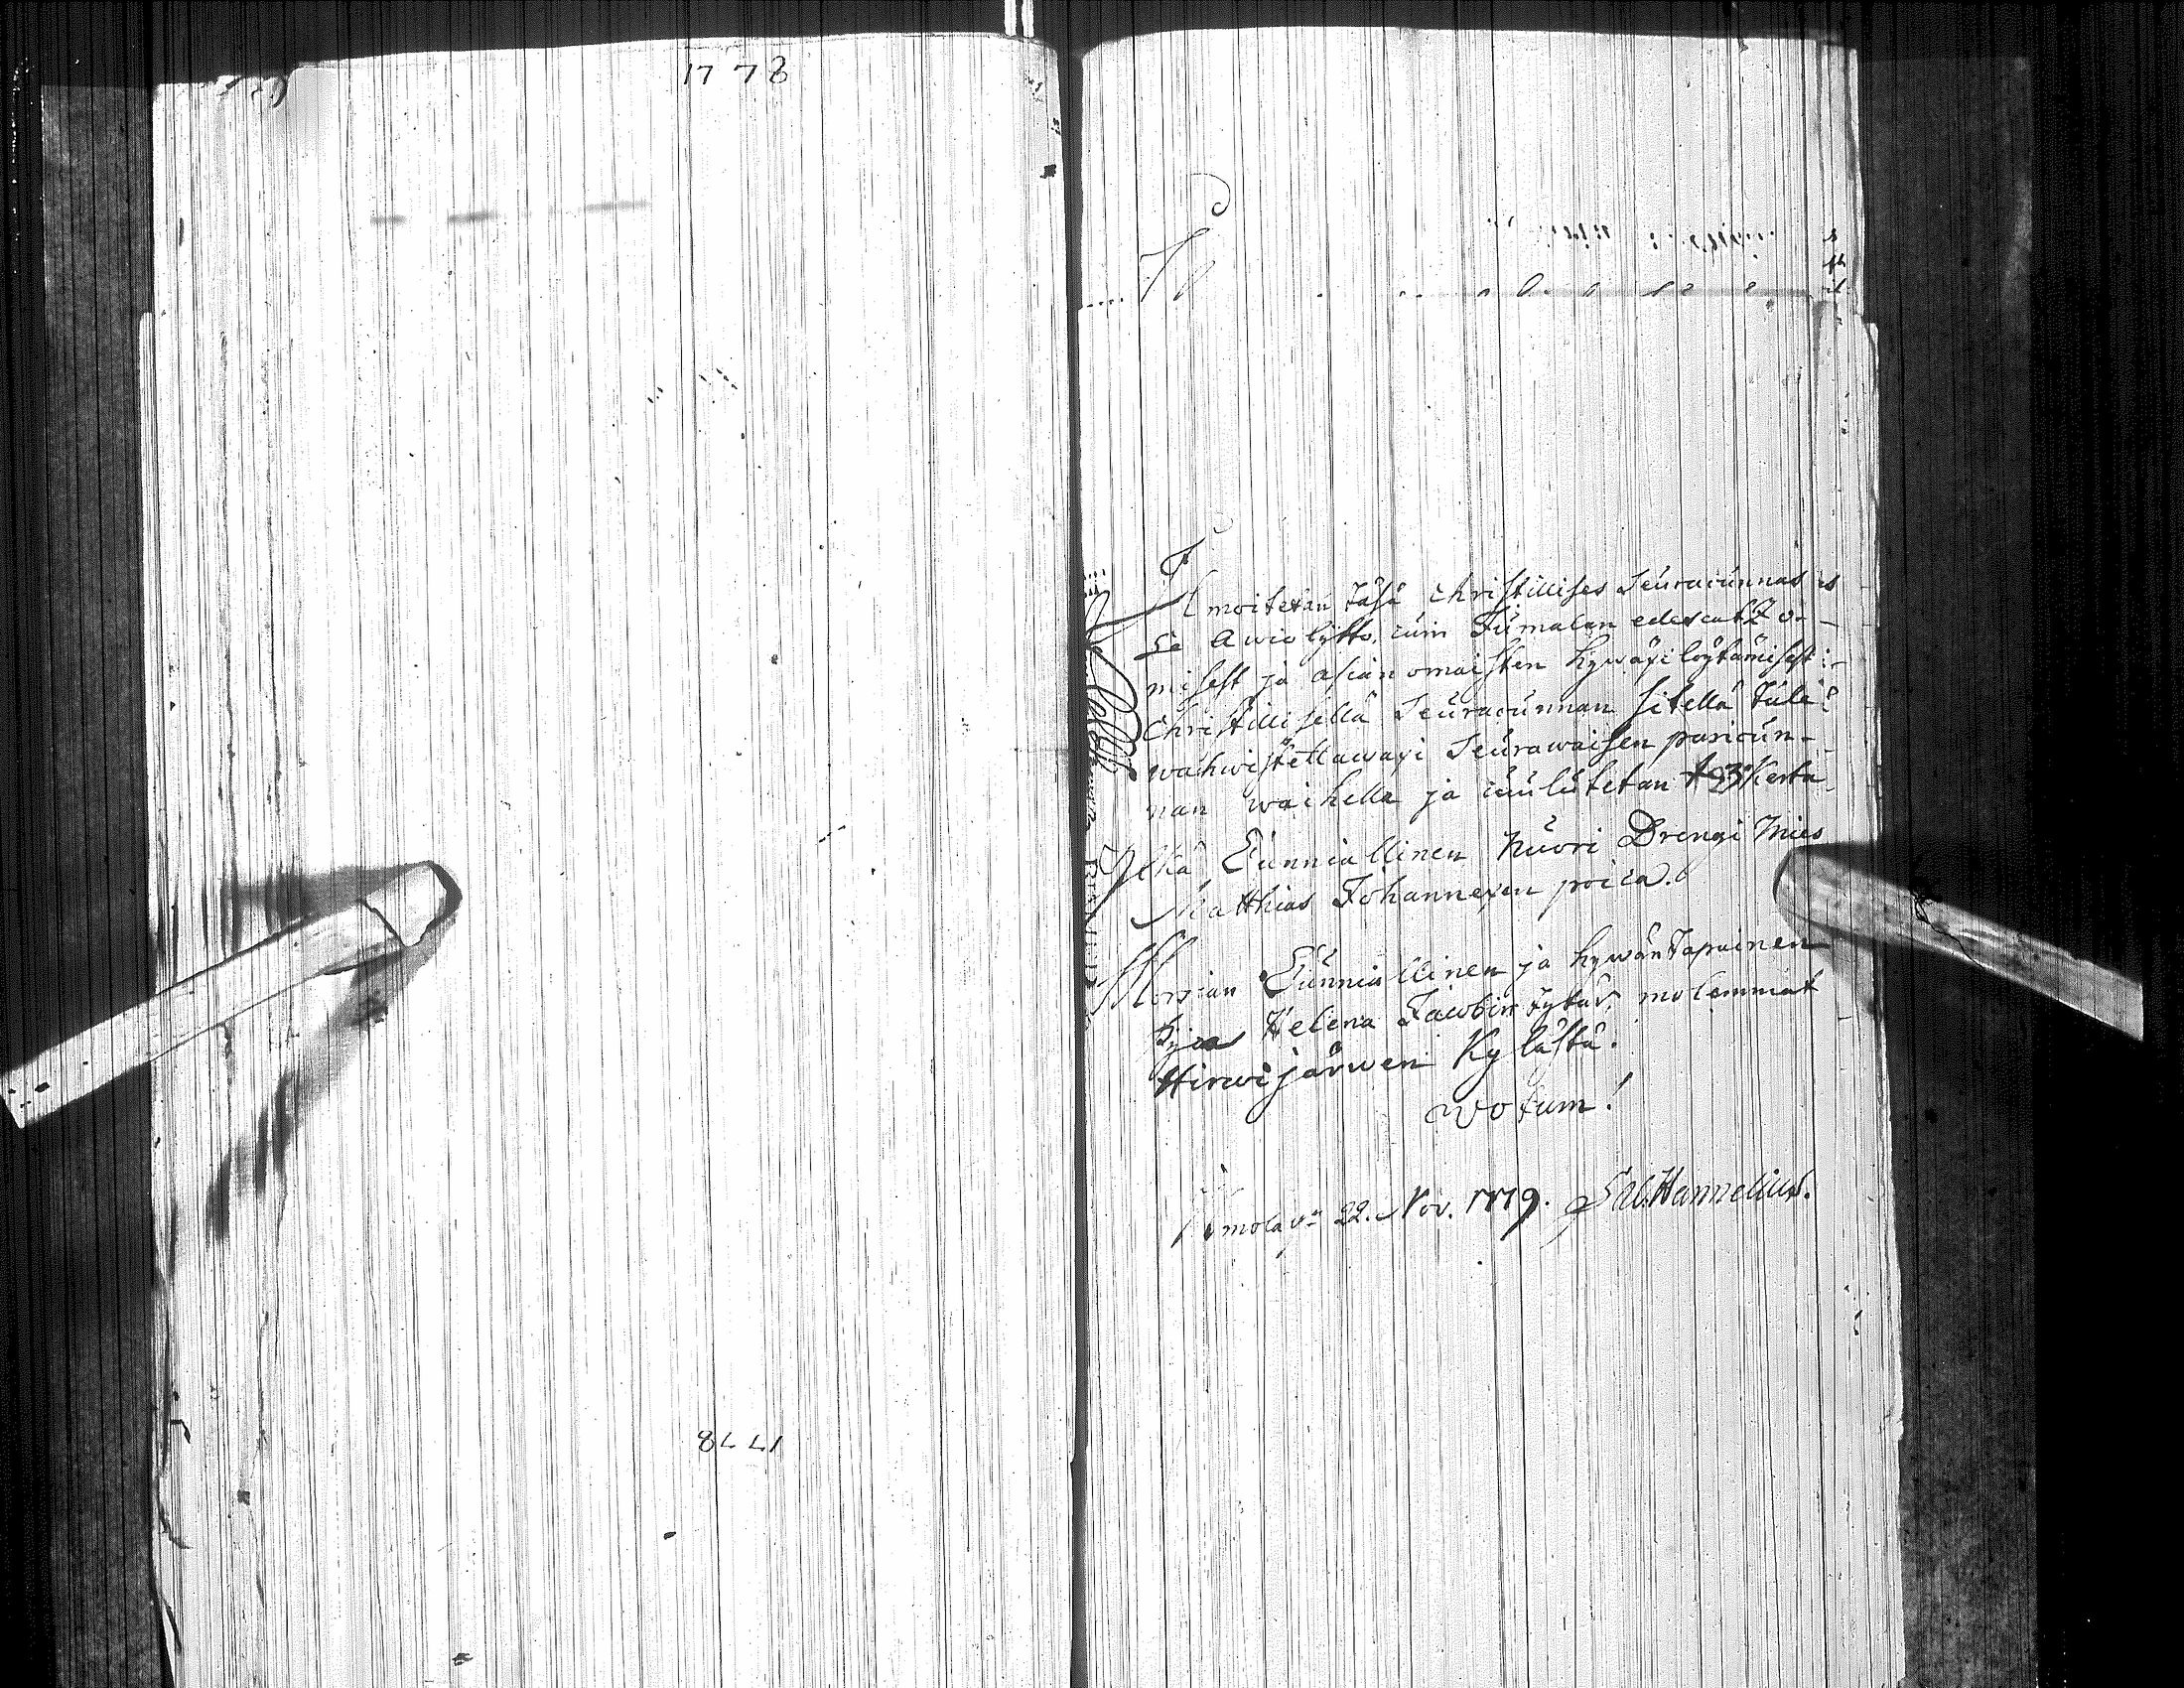 1778
Ilmoitetan täsä Christillises Seuracunnas
se Awio lijtto, cuin Jumalan edescatzo-
misest ja asian omaisten hywäxi löytämisest
Christillisellä Seuracunnan sitellä tule
wahwistettawaxi Seurawaisen paricun-
nan waihella ja cuulutetan 3 Kerta
Yljkä Cunniallinen Nuori Drengi Mies
Matthias Johannexen poica.
Morsian Cunniallinen ja hywäntapainen
Pijca Helena Jacobin tytär, molemmat
Hirwijärwen Kylästä.
Votum!
22. Nov. 1779. Sal. Hannelius.
1778